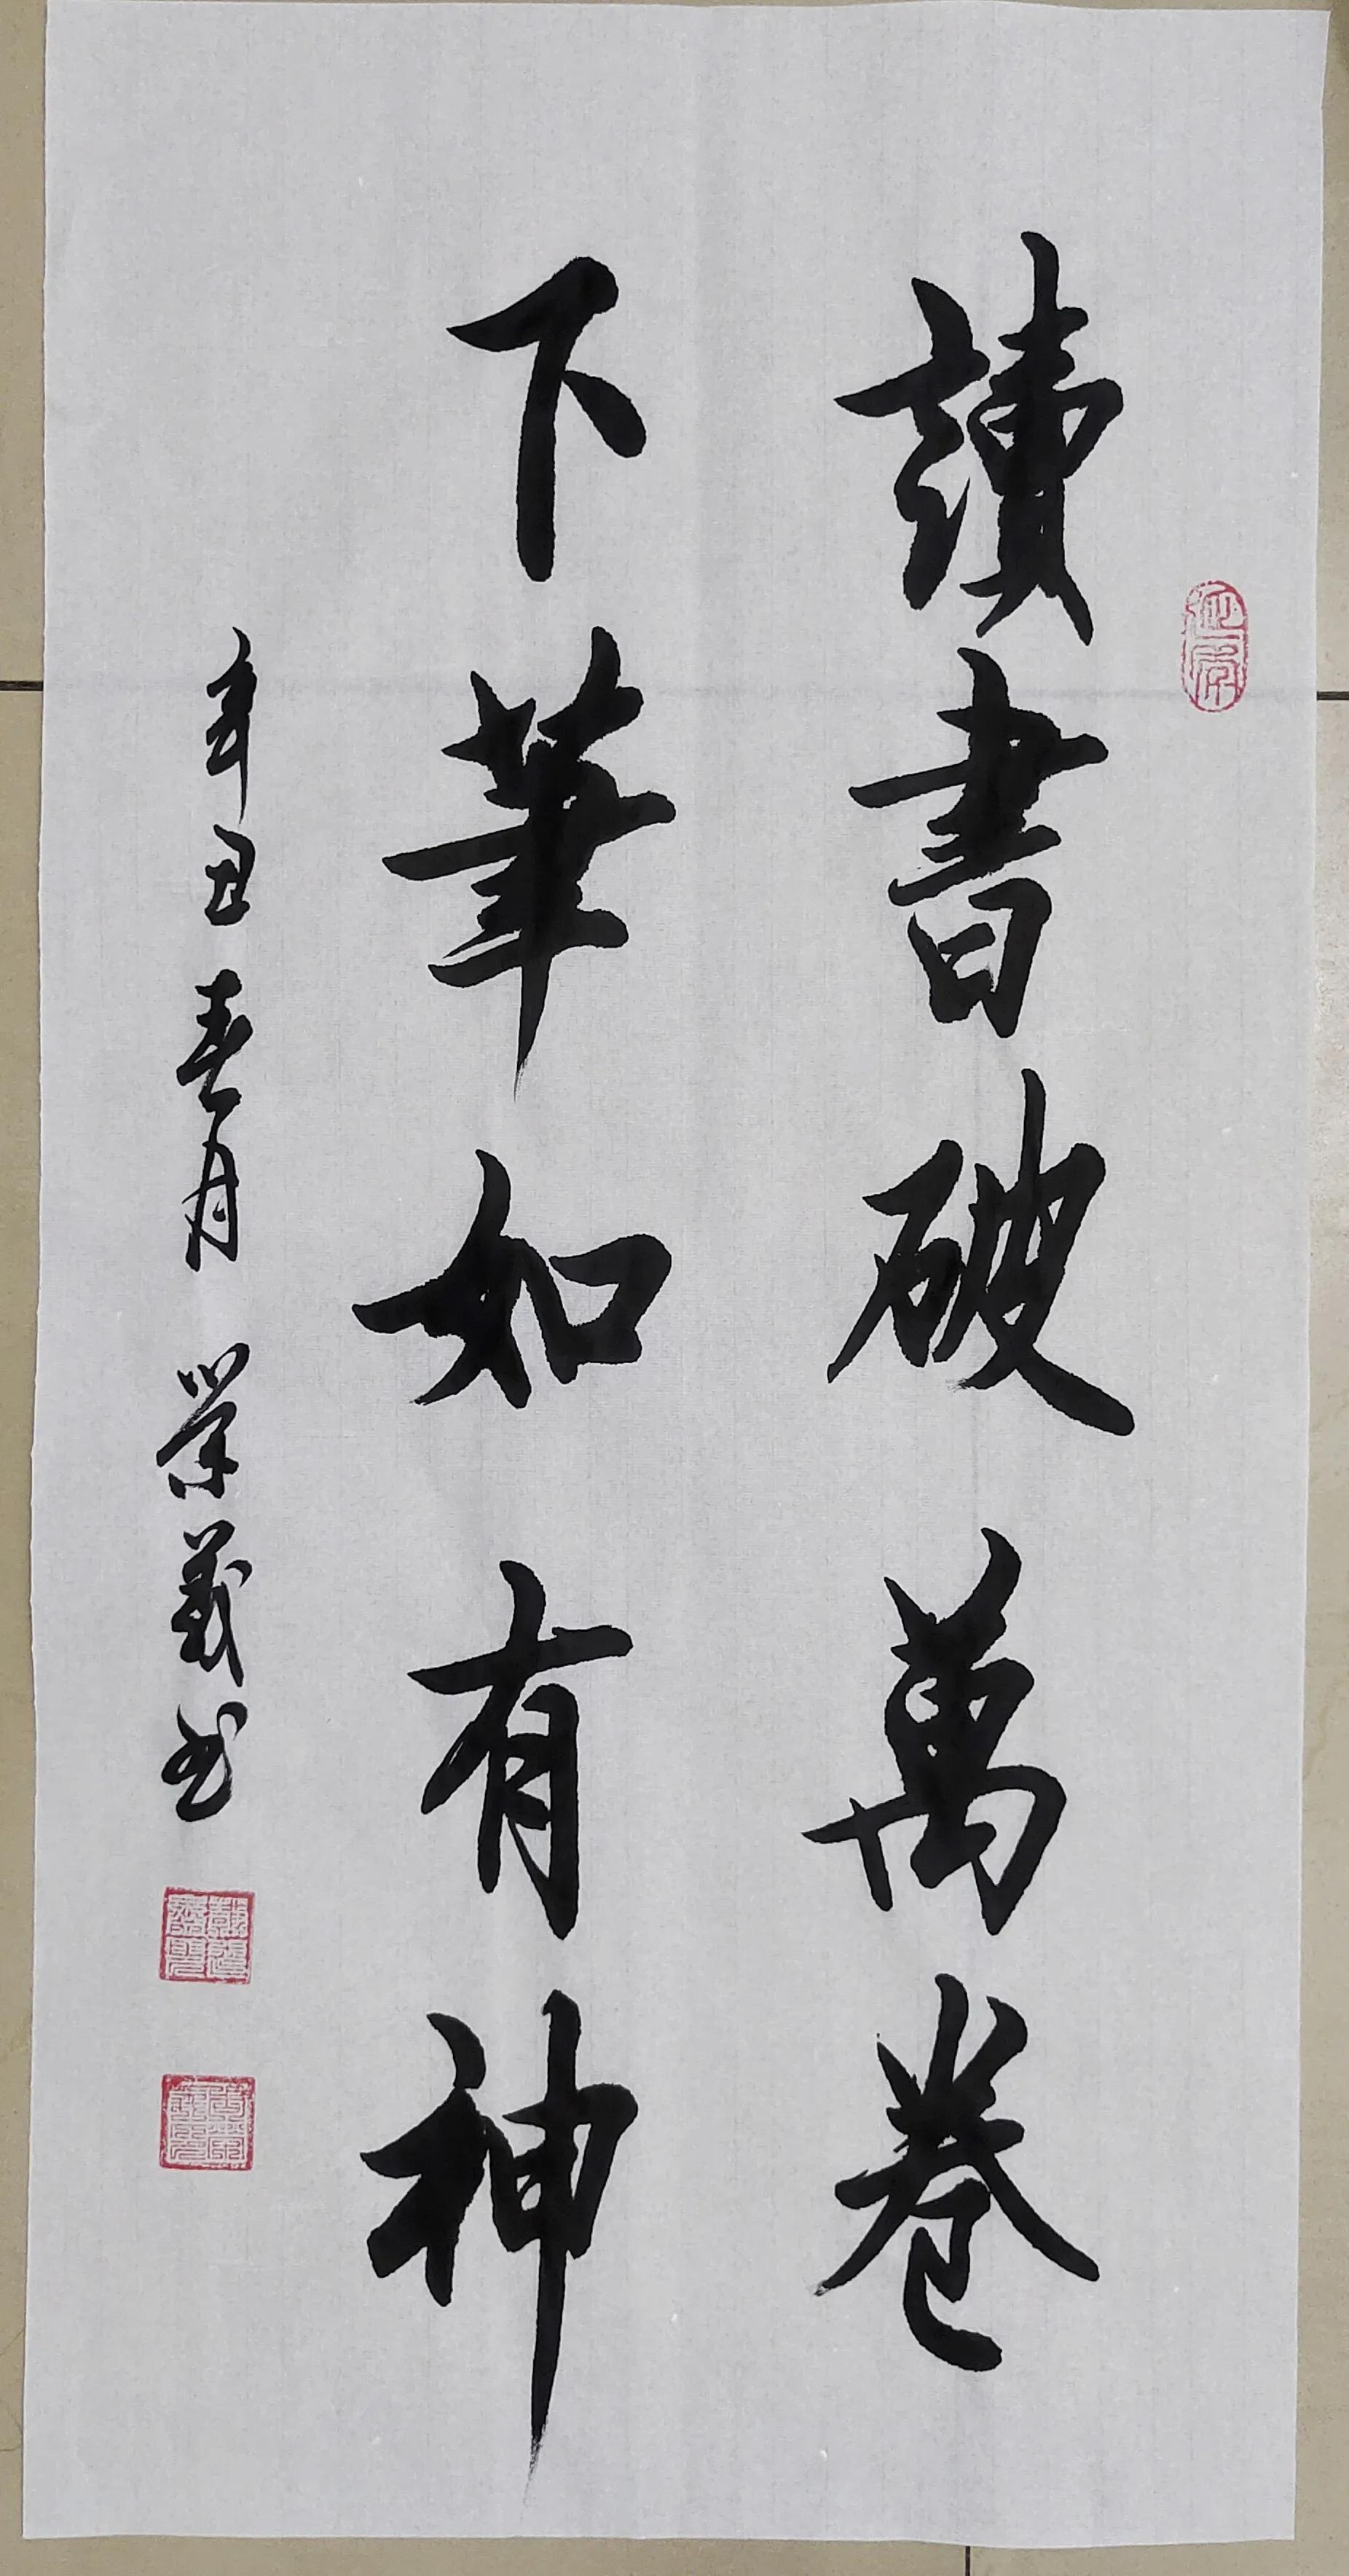 讀書破萬卷
下筆如有神
辛丑春月 榮義书